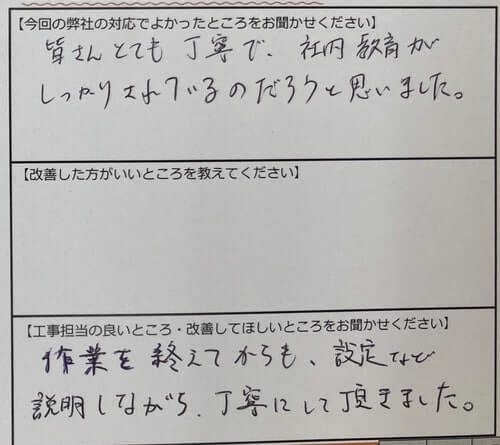 【今回の弊社の対応でよかったところをお聞かせください】
皆さんとても丁寧で、社内教育が
しっかりされているのだろうと思いました。
【改善した方がいいところを教えてください】
【工事担当の良いところ・改善してほしいところをお聞かせください】
作業を終えてからも、設定など
説明しながら、丁寧にして頂きました。